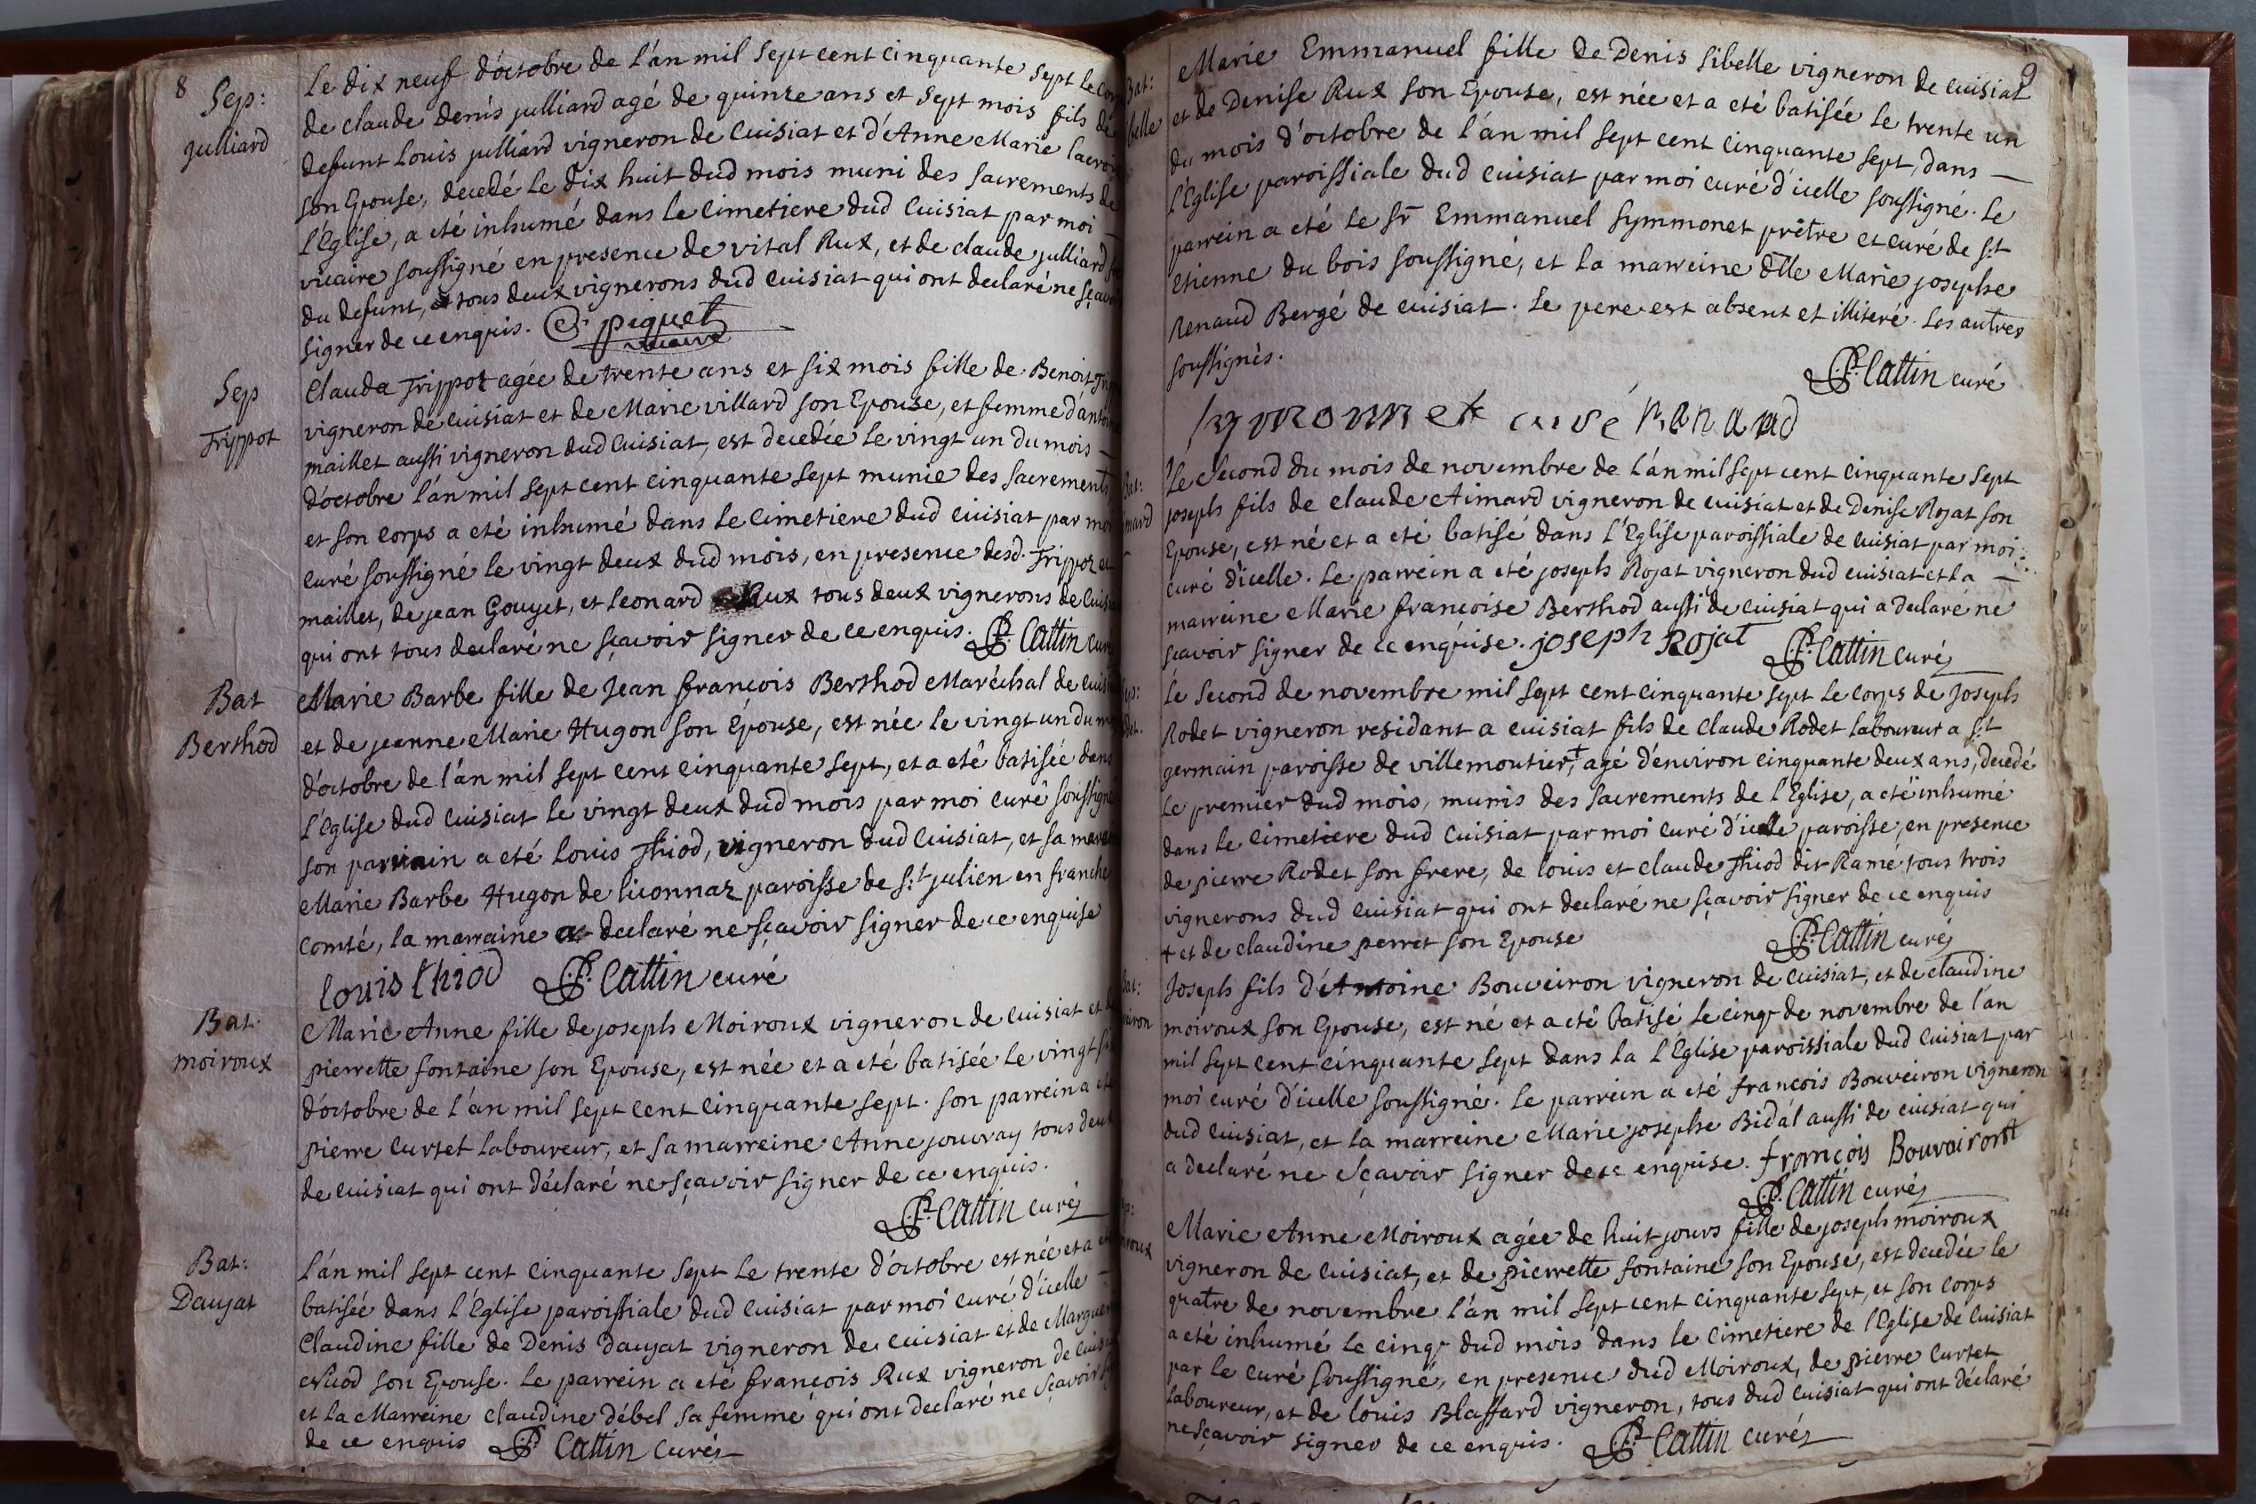 8
Sep:
julliard
Le dix neuf d'octobre de l'an mil sept cent cinquante sept le
de claude denis julliard agé de quinze ans et sept mois fils de
defunt Louis julliard vigneron de Cuisiat et d'Anne Marie
son Epouse, decedé le dix huit dud mois muni des sacrements de
l'Eglise, a eté inhumé dans le cimetiere dud Cuisiat par moi
vicaire soussigné en presence de vital Rux, et de claude julliard
du defunt, tous deux vignerons dud Cuisiat qui ont declaré ne
signer de ce enquis. piquet
vicaire
Sep
Trippot
Clauda Trippot agée de trente ans et six mois fille de Benoit
vigneron de Cuisiat et de Marie villard son Epouse, et femme
maillet aussi vigneron dud Cuisiat, est decedée le vingt un du mois
d'octobre l'an mil sept cent cinquante sept munie des sacrements
et son corps a eté inhumé dans le cimetiere dud Cuisiat par
curé soussigné le vingt deux dud mois, en presence desd. Trippoz
maillet, de jean Gouyet, et leonard Rux tous deux vignerons de
qui ont tous declaré ne sçavoir signer de ce enquis. Cattin
Bat
Berthod
Marie Barbe fille de Jean françois Berthod Maréchal de
et de jeanne Marie Hugon son Epouse, est née le vingt un du
d'octobre de l'an mil sept cent cinquante sept, et a eté batisée dans
l'Eglise dud Cuisiat le vingt deux dud mois par moi curé
son parrain a eté Louis Thiod, vigneron dud Cuisiat, et sa
Marie Barbe Hugon de liconnaz paroisse de s.t julien en franche
comté, la marraine a declaré ne sçavoir signer de ce enquise
louis thiod Cattin curé
Bat.
moiroux
Marie Anne fille de joseph Moiroux vigneron de Cuisiat et
pierrette fontaine son Epouse, est née et a eté batisée le vingt
d'octobre de l'an mil sept cent cinquante sept. son parrein a
pierre Curtet laboureur, et sa marreine Anne jouvray tous
de Cuisiat qui ont déclaré ne sçavoir signer de ce enquis.
Cattin curé
Bat:
Daujat
L'an mil sept cent cinquante sept le trente d'octobre est née et a
batisée dans l'Eglise paroissiale dud Cuisiat par moi curé d'icelle
Claudine fille de Denis Daujat vigneron de Cuisiat et de
son Epouse. Le parrein a eté françois Rux vigneron de
et la Marreine Claudine débel sa femme qui ont declaré ne sçavoir
de ce enquis Cattin curé
9
Marie Emmanuel fille de Denis Sibelle vigneron de Cuisiat
et de Denise Rux son Epouse, est née et a eté batisée le trente un
du mois d'octobre de l'an mil sept cent cinquante sept, dans
l'Eglise paroissiale dud Cuisiat par moi curé d'icelle soussigné. Le
parrein a eté le Sr Emmanuel Symmonet prêtre et curé de s.t
Etienne du bois soussigné, et la marreine dlle Marie josephe
Renaud Bergé de Cuisiat. Le pere est absent et illiteré. Les autres
soussignés.
Cattin curé
symmonnet curé Renaud
Le Second du mois de novembre de l'an mil sept cent cinquante sept
joseph fils de claude Aimard vigneron de Cuisiat et de Denise Rojat son
Epouse, est né et a eté batisé dans l'Eglise paroissiale de Cuisiat par moi
curé d'icelle. Le parrein a eté joseph Rojat vigneron dud Cuisiat et la
marreine Marie françoise Berthod aussi de Cuisiat qui a declaré ne
sçavoir signer de ce enquise. joseph Rojat Cattin curé
Le Second de novembre mil sept cent cinquante sept le corps de Joseph
Rodet vigneron residant a Cuisiat fils de Claude Rodet Laboureur a s.t
germain paroisse de villemoutier,+ agé d'environ cinquante deux ans, decedé
le premier dud mois, munis des sacrements de l'Eglise, a eté inhumé
dans le cimetiere dud Cuisiat par moi curé d'icelle paroisse, en presence
de pierre Rodet son frere, de louis et claude Thiod dit Ramé, tous trois
vignerons dud Cuisiat qui ont declaré ne sçavoir signer de ce enquis
+ et de claudine perret son Epouse
Cattin curé
Joseph fils d'Antoine Bouveiron vigneron de Cuisiat, et de claudine
moiroux son Epouse, est né et a eté batisé le cinq de novembre de l'an
mil sept cent cinquante sept dans la l'Eglise paroissiale dud Cuisiat par
moi curé d'icelle soussigné. Le parrein a eté françois Bouveiron vigneron
dud Cuisiat, et la marreine Marie josephe Bidal aussi de Cuisiat qui
a declaré ne sçavoir signer de ce enquise. françois Bouvairont
Cattin curé
Marie Anne Moiroux agée de huit jours fille de joseph moiroux
vigneron de Cuisiat, et de pierrette fontaine son Epouse, est decedée le
quatre de novembre l'an mil sept cent cinquante sept, et son corps
a eté inhumé le cinq dud mois dans le cimetiere de l'Eglise de Cuisiat
par le curé soussigné, en presence dud Moiroux, de pierre Curtet
laboureur, et de louis Blaffard vigneron, tous dud Cuisiat qui ont déclaré
ne sçavoir signer de ce enquis. Cattin curé